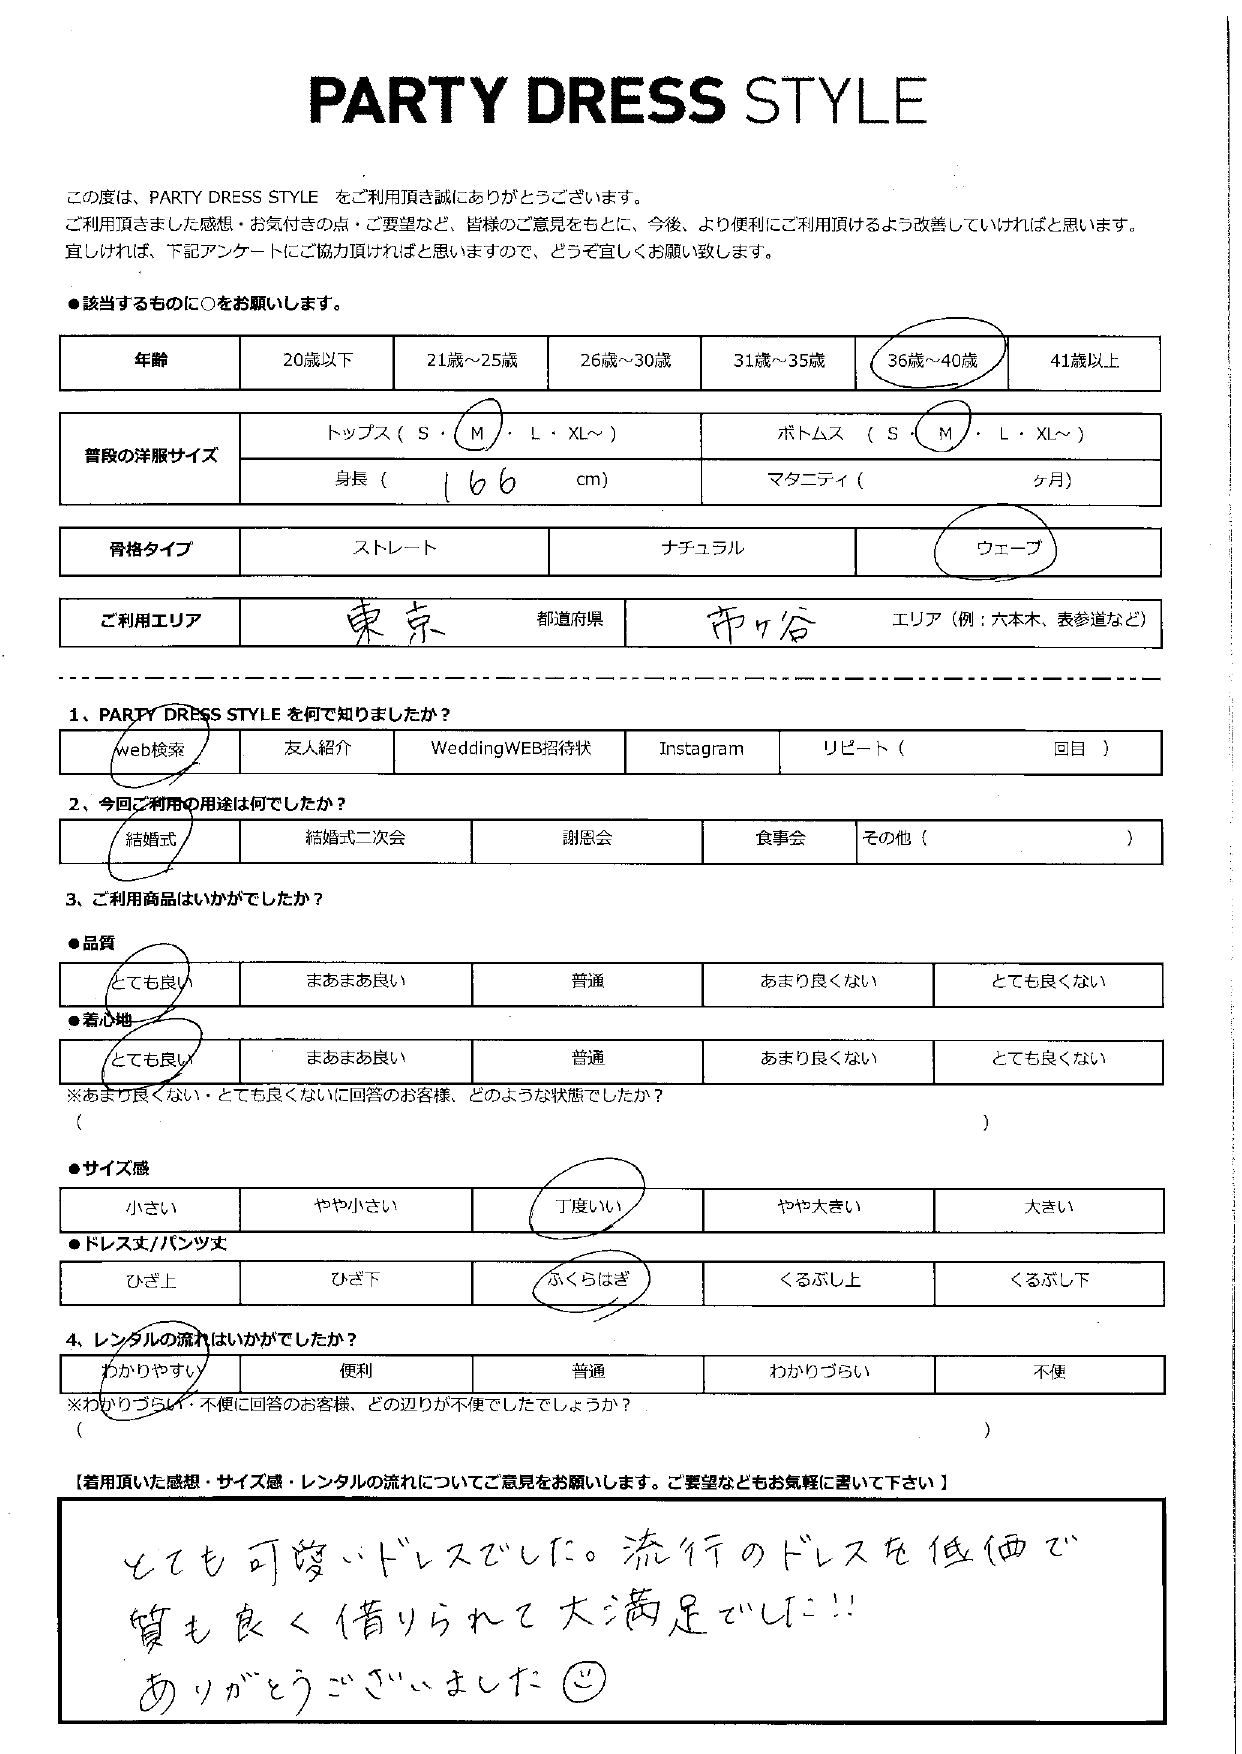 PARTY DRESS STYLE
この度は、PARTY DRESS STYLE をご利用頂き誠にありがとうございます。
ご利用頂きました感想・お気付きの点・ご要望など、皆様のご意見をもとに、今後、より便利にご利用頂けるよう改善していければと思います。
宜しければ、下記アンケートにご協力頂ければと思いますので、どうぞ宜しくお願い致します。
●該当するものに○をお願いします。
年齢 20歳以下 21歳～25歳 26歳～30歳 31歳～35歳 36歳～40歳 41歳以上
普段の洋服サイズ トップス ( S ・ M ・ L ・ XL～ ) ボトムス ( S ・ M ・ L ・ XL～ )
身長 ( 166 cm) マタニティ ( ヶ月)
骨格タイプ ストレート ナチュラル ウェーブ
ご利用エリア 東京 都道府県 市ヶ谷 エリア（例：六本木、表参道など）
1、PARTY DRESS STYLE を何で知りましたか？
web検索 友人紹介 WeddingWEB招待状 Instagram リピート ( 回目 )
2、今回ご利用の用途は何でしたか？
結婚式 結婚式二次会 謝恩会 食事会 その他 ( )
3、ご利用商品はいかがでしたか？
●品質
とても良い まあまあ良い 普通 あまり良くない とても良くない
●着心地
とても良い まあまあ良い 普通 あまり良くない とても良くない
※あまり良くない・とても良くないに回答のお客様、どのような状態でしたか？
( )
●サイズ感
小さい やや小さい 丁度いい やや大きい 大きい
●ドレス丈/パンツ丈
ひざ上 ひざ下 ふくらはぎ くるぶし上 くるぶし下
4、レンタルの流れはいかがでしたか？
わかりやすい 便利 普通 わかりづらい 不便
※わかりづらい・不便に回答のお客様、どの辺りが不便でしたでしょうか？
( )
【着用頂いた感想・サイズ感・レンタルの流れについてご意見をお願いします。ご要望などもお気軽に書いて下さい】
とても可愛いドレスでした。流行のドレスを低価で
質も良く借りられて大満足でした!!
ありがとうございました☺